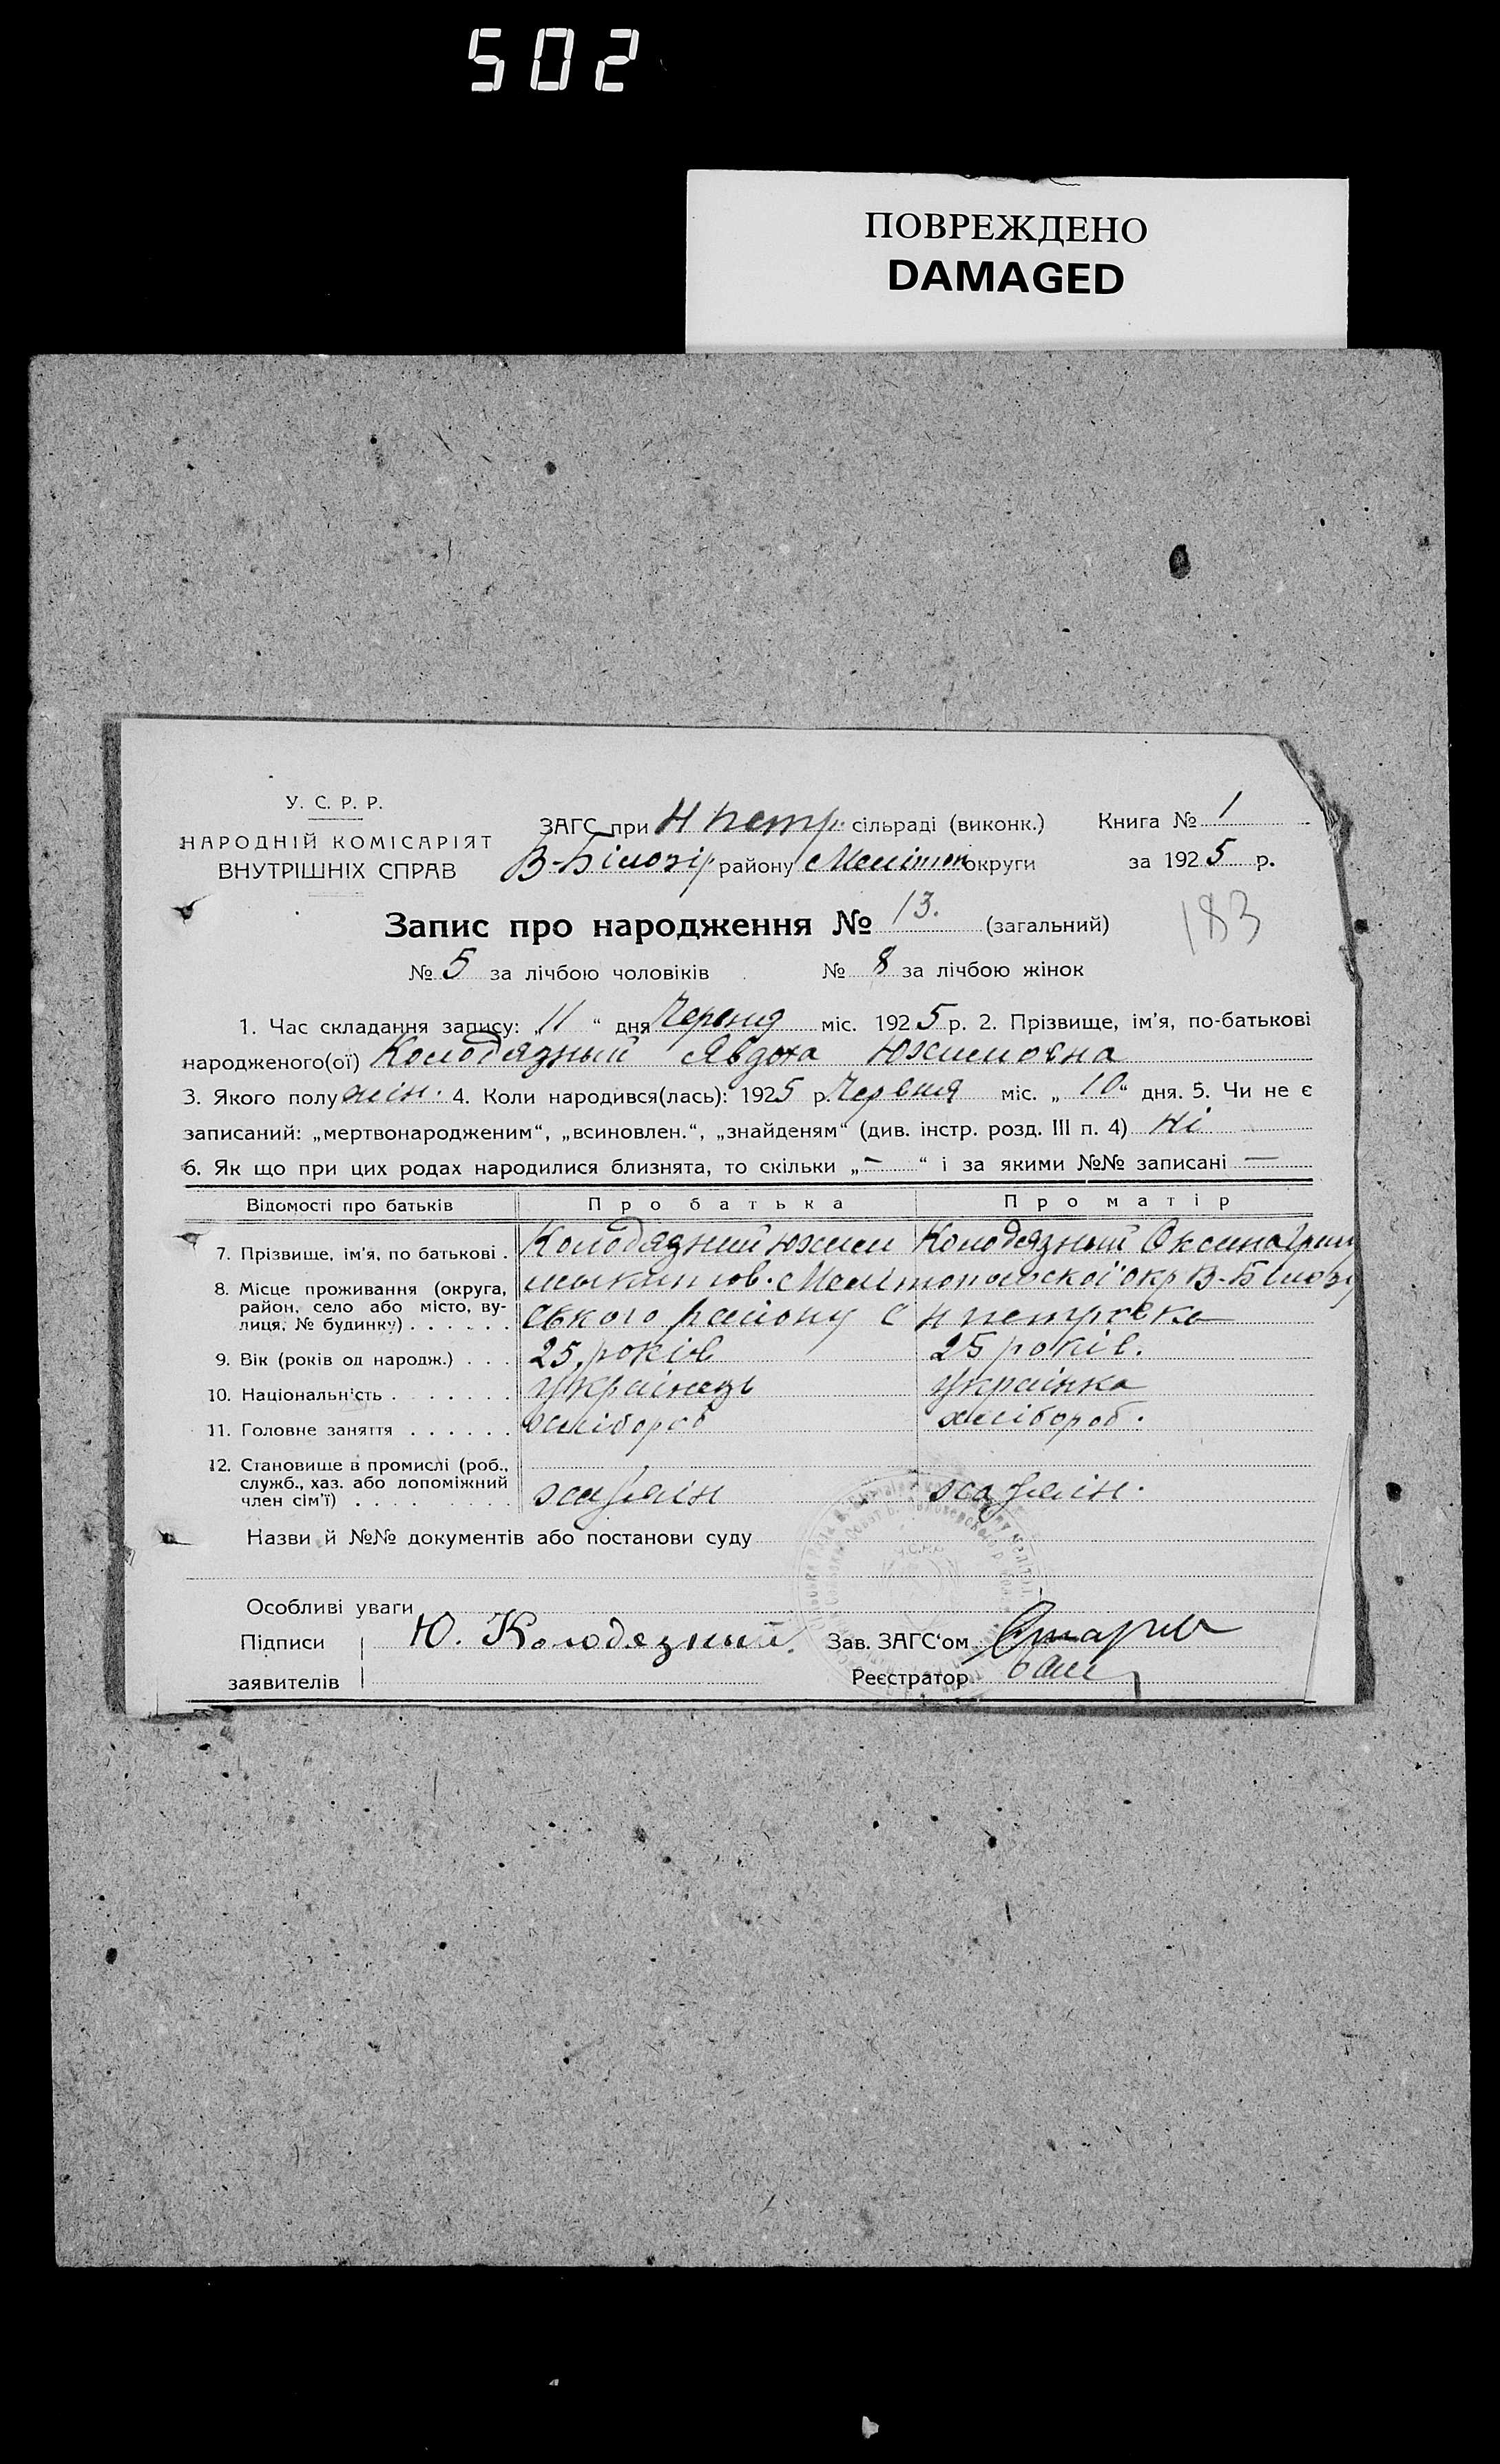 502
ПОВРЕЖДЕНО
DAMAGED
У. С. Р. Р.
НАРОДНІЙ КОМІСАРІЯТ
ВНУТРІШНІХ СПРАВ
ЗАГС при Н петр. сільраді (виконк.) Книга № 1
В-Білозір району Меліт округи за 1925 р.
Запис про народження № 13. (загальний) 183
№ 5 за лічбою чоловіків № 8 за лічбою жінок
1. Час складання запису: „11“ дня Червня міс. 1925 р. 2. Прізвище, ім'я, по-батькові
народженого(ої) Колодязный Явдоха Юхимовна
3. Якого полу жін. 4. Коли народився(лась): 1925 р. Червня міс. „10“ дня. 5. Чи не є
записаний: „мертвонародженим“, „всиновлен.“, „знайденям“ (див. інстр. розд. III п. 4) Ні
6. Як що при цих родах народилися близнята, то скільки „—“ і за якими №№ записані —
Відомості про батьків Про батька Про матір
7. Прізвище, ім'я, по батькові . Колодязний Юхим Колодязный Оксина Гри
8. Місце проживання (округа, район, село або місто, вулиця, № будинку) . . . . . Мелітопольскої окр В-Білозі
ського району с Н петровка
9. Вік (років од народж.) . . . 25 років 25 років.
10. Національність . . . . . . . Українець Українка
11. Головне заняття . . . . . . хлібороб хлібороб.
12. Становище в промислі (роб.,
служб., хаз. або допоміжний
член сім'ї) . . . . . . . . . хазяїн хазяїн.
Назви й №№ документів або постанови суду
Особливі уваги
Підписи Ю. Колодезный. Зав. ЗАГС'ом
заявителів Реєстратор